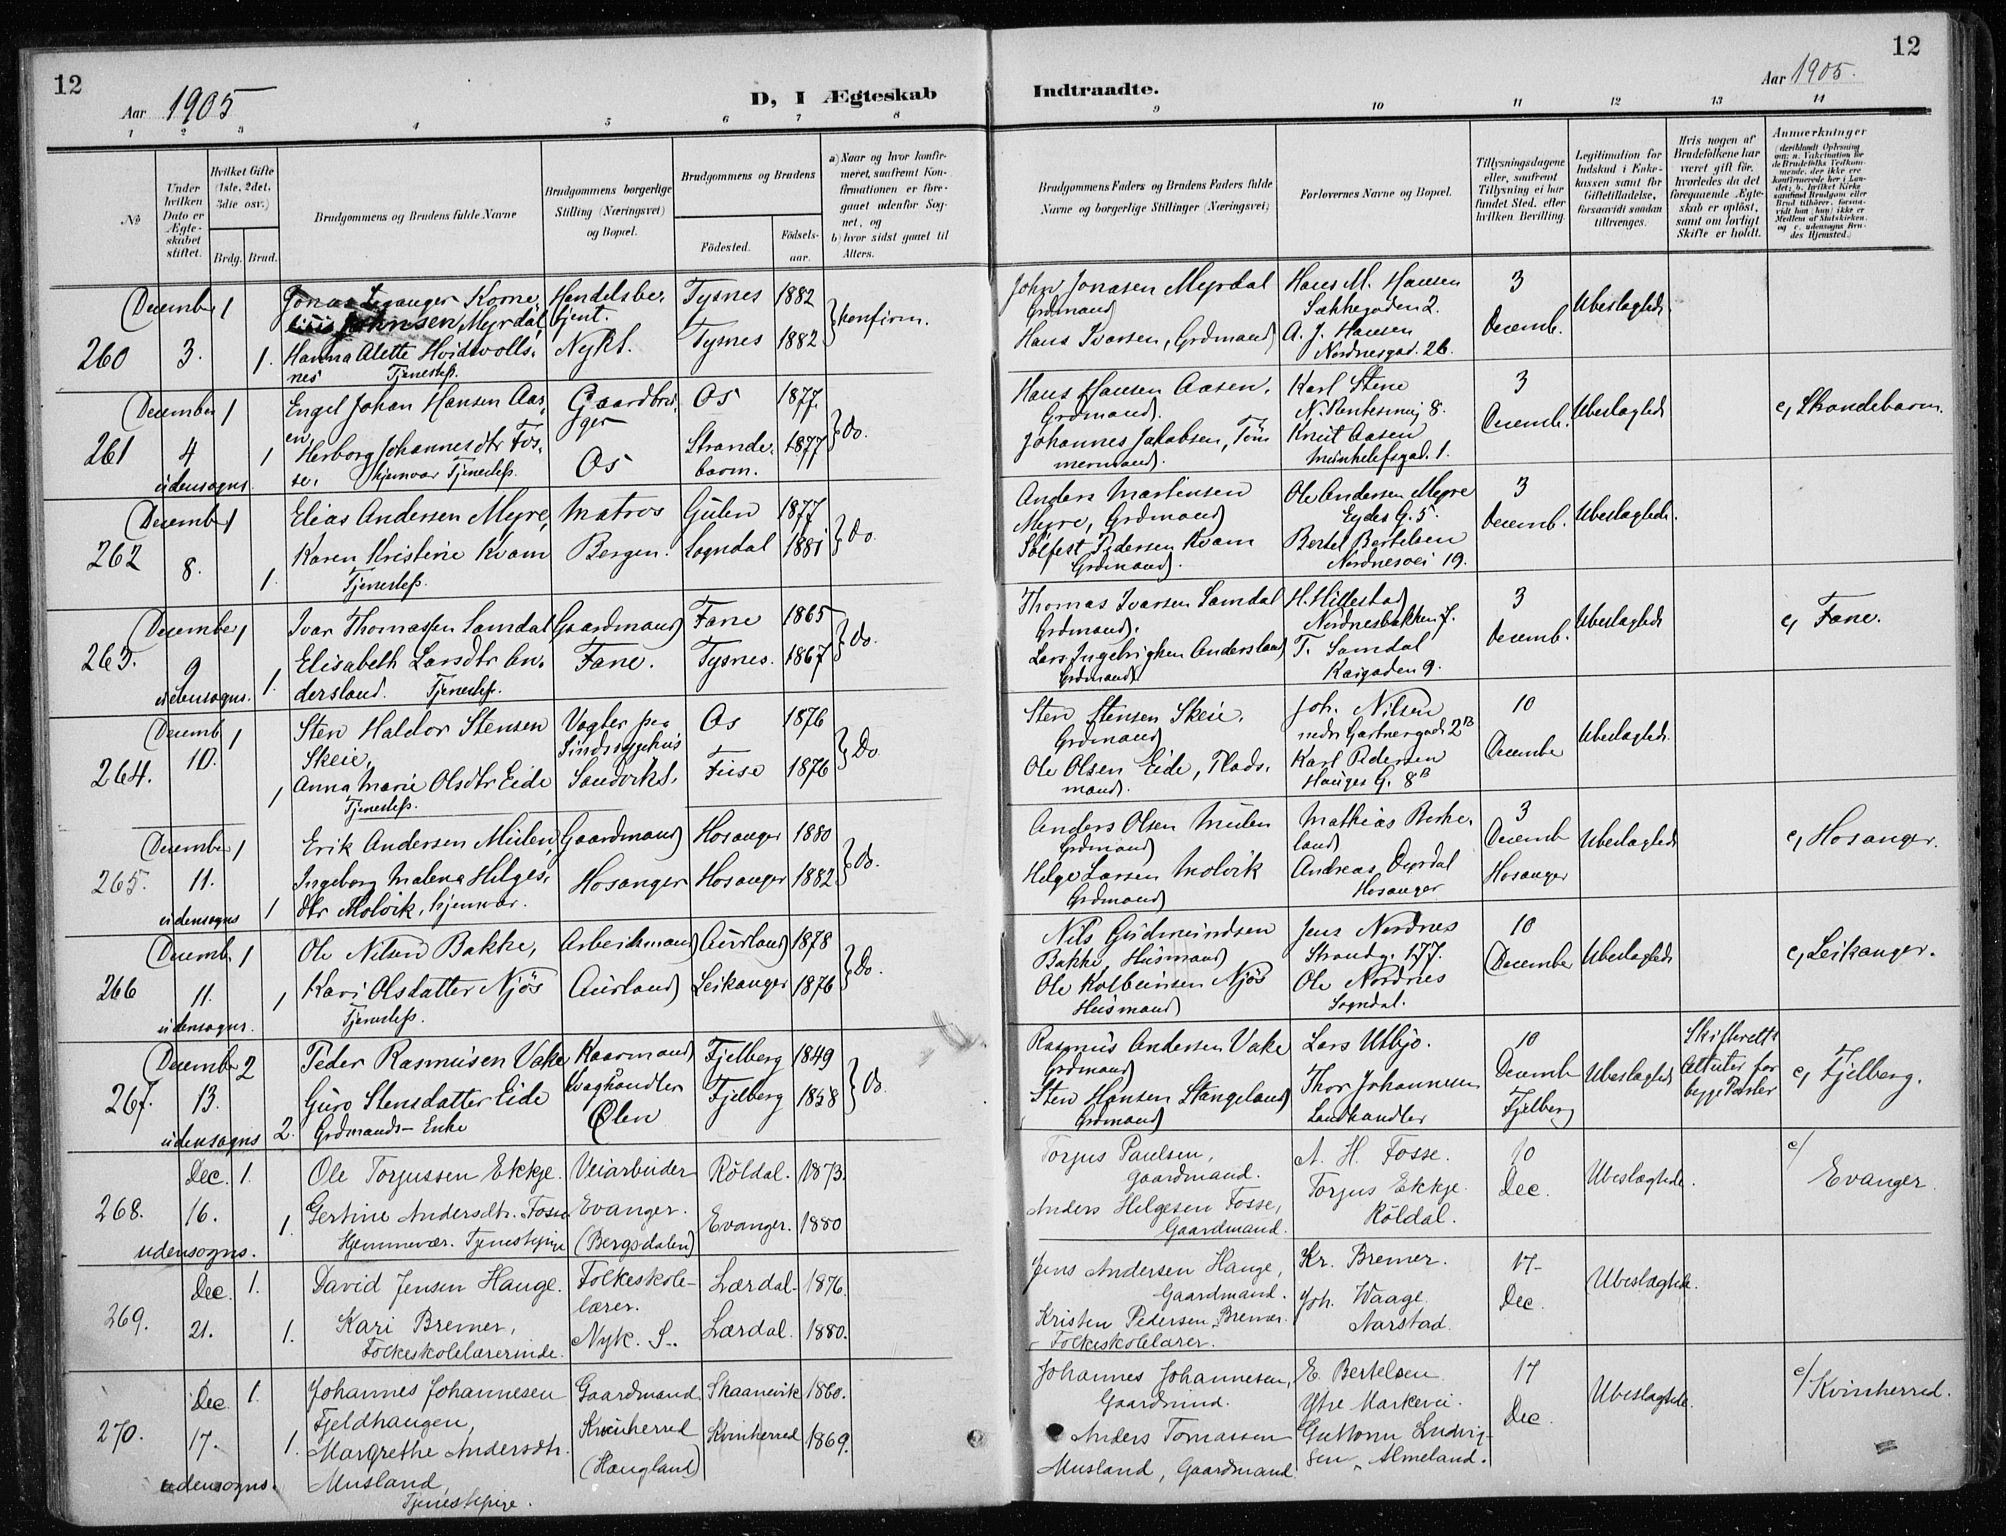 12
Aar 1905
D, I Ægteskab
1 2 3 4 5 6 7 8
№
Under hvilken Dato er Ægteskabet stiftet.
Hvilket Gifte (1ste, 2det, 3die osv.)
Brdg. Brud.
Brudgommens og Brudens fulde Navne
Brudgommens borgerlige Stilling (Næringsvei) og Bopæl.
Brudgommens og Brudens
Fødested.
Fødselsaar.
a) Naar og hvor konfirmeret, saafremt Konfirmationen er foregaaet udenfor Sognet, og
b) hvor sidst gaaet til Alters.
260 December 3. 1 1.
Johnsen, Myrdal,
Handelsbetjent.
Nykt.
Tysnes 1882
Hanna Alette Hvidevollsnes Tjenestep.
Tysnes 1882
konfirm.
261 December 4 1 1
udensogns.
Engel Johan Hansen Aasen,
Gaardbruger
Os
Os 1877.
Herborg Johannesdtr Fosse, hjemvær Tjenestep.
Strandebarm. 1877
Do.
262 December 8. 1 1.
Elias Andersen Myre,
Matros
Bergen.
Gulen 1877
Karen Kristine Kvam
Tjenestep.
Sogndal 1881
Do.
263. December 9 1 1.
udensogns.
Ivar Thomassen Samdal
Gaardmand
Fane.
Fane 1865
Elisabeth Larsdtr Andersland. Tjenestep.
Tysnes. 1867
Do.
264. Decemb. 10. 1 1
Sten Haldor Stensen Skeie,
Vogter paa Sindssygehus
Sandvikt.
Os 1876
Anna Marie Olsdtr Eide
Tjenestep.
Fuse 1876
Do.
265. December 11. 1 1
udensogns
Erik Andersen Mulen,
Gaardmand
Hosanger
Hosanger 1880
Ingeborg Malena Helgesdtr Molvik, hjemvær.
Hosanger 1882
Do.
266 Decemb. 11. 1 1
udensogns.
Ole Nilsen Bakke,
Arbeidsmand
Aurland
Aurland 1878
Kari Olsdatter Njøs
Tjenestep.
Leikanger 1876
Do.
267. December 13. 2 2.
udensogns
Peder Rasmusen Vake
Kaarmand
Kvaghandler
Ølen
Fjelberg 1849
Guro Stensdatter Eide
Grdmands-Enke
Fjelberg 1858
Do.
268. Dec. 16. 1. 1.
udensogns.
Ole Torjussen Ekkje.
Veiarbeider
Evanger.
(Bergsdalen)
Røldal. 1873.
Gertine Andersdtr. Fosse
Hjemmevær. Tjenestepige
Evanger. 1880
269. Dec. 21. 1. 1.
David Jensen Hauge.
Folkeskolelærer.
Nyk. S..
Lærdal. 1876.
Kari Bremer,
Folkeskolelærerinde.
Lærdal. 1880.
270. Dec. 17. 1. 1.
udensogns.
Johannes Johannesen Fjeldhaugen,
Gaardmand
Kvinherred
(Haugland)
Skaanevik 1860.
Margrethe Andersdtr. Musland,
Tjenestepige.
Kvinherred 1869.
12
Aar 1905.
Indtraadte.
9 10 11 12 13 14
Brudgommens Faders og Brudens Faders fulde Navne og borgerlige Stillinger (Næringsvei)
Forlovernes Navne og Bopæl.
Tillysningsdagene eller, saafremt Tillysning ei har fundet Sted, efter hvilken Bevilling.
Legitimation for Indskud i Enkekassen samt for Giftetilladelse, forsaavidt saadan tiltrænges.
Hvis nogen af Brudefolkene har været gift før, hvorledes da det foregaaende Ægteskab er opløst, samt om lovligt Skifte er holdt.
Anmærkninger
(deriblandt Oplysning om: a. Vakcination for de Brudefolks Vedkommende, der ikke ere konfirmerede her i Landet; b. hvilket Kirkesamfund Brudgom eller Brud tilhører, forsaavidt han (hun) ikke er Medlem af Statskirken, og c. udensogns Brudes Hjemsted.)
John Jonasen Myrdal
Grdmand
Hans M. Hansen
Sækkegaden 2.
3
Decemb.
Ubeslægtede.
Hans Ivarsen, Grdmand
A. J. Hansen
Nordnesgad. 26.
Hans Hansen Aasen,
Grdmand.
Karl Stene
3
Decemb.
Ubeslægtede
c, Strandebarm.
Johannes Jakobsen, Tømmermand.
Knut Aasen
Munkelefsgad. 1.
Anders Martinsen Myre, Grdmand
Ole Andersen Myre
Eydes G. 5.
3
Decemb.
Ubeslægtede.
Sølfest Pedersen Kvam
Grdmand.
Bertel Bertelsen
Nordnesvei 19.
Thomas Ivarsen Samdal
Grdmand.
H. Hillestad
Nordnesbakken 7.
3
Decemb.
Ubeslægtede
c, Fane.
Lars Ingebrigtsen Andersland
Grdmand
T. Samdal
Kaigaden 9.
Sten Stensen Skeie.
Grdmand
Joh. Nilsen
nedr Gartnergade 2B
10
December
Ubeslægtede.
Ole Olsen Eide, Pladsmand.
Karl Pedersen
Hauges G. 8B
Anders Olsen Mulen
Grdmand
Mathias Birkeland
3
Decemb
Hosanger
Ubeslægtede
c, Hosanger.
Helge Larsen Molvik
Grdmand
Andreas
Hosanger
Nils Gudmundsen Bakke, Husmand
Jens Nordnes
Strandg. 177.
10
December
Ubeslægtede
c, Leikanger.
Ole Kolbeinsen Njøs
Husmand
Ole Nordnes
Sogndal.
Rasmus Andersen Vake
Grdmand
Lars Utbjo.
10
Decembe
Fjelberg
Ubeslægtede
Skifteretts Attester for begge Parter
c, Fjelberg.
Sten Hansen Stangeland
Grdmand
Thor Johannesen
Landhandler
Torjus Paulsen,
Gaardmand.
A. H. Fosse.
10
Dec.
Ubeslægtede.
c/ Evanger
Anders Helgesen Fosse,
Gaardmand.
Torjus Ekkje.
Røldal.
Jens Andersen Hauge,
Gaardmand.
Kr. Bremer.
17
Dec.
Ubeslægtede.
Kristen Pedersen Bremer.
Folkeskolelærer.
Joh. Waage
Narstad.
Johannes Johannesen,
Gaardmand.
E. Bertelsen
Ytre Markevei.
17
Dec.
Ubeslægtede.
c/ Kvinherred.
Anders Tomassen
Musland, Gaardmand
Guttorm Ludvigsen, Almeland.